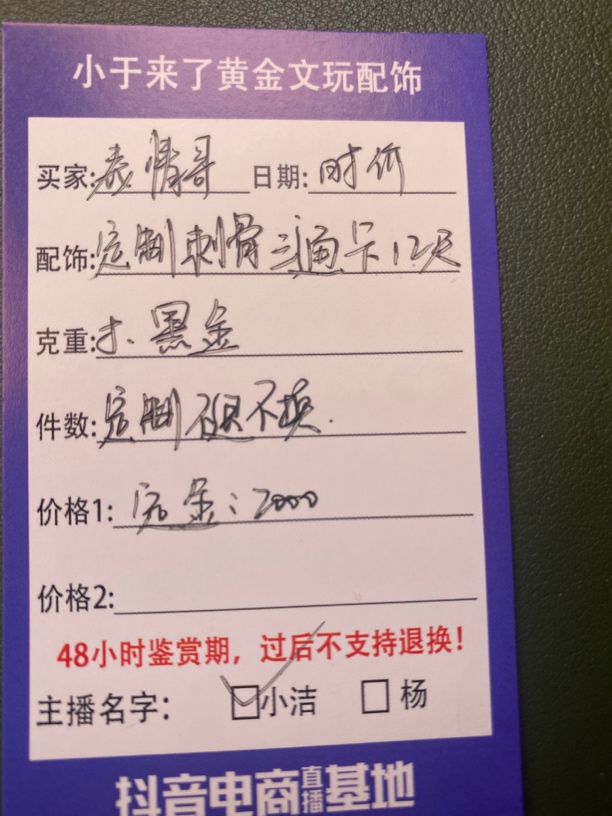 小于来了黄金文玩配饰
买家:表情哥 日期:时价
配饰:定制刺骨三通卡12天
克重:才、黑金
件数:定制不退不换.
价格1: 定金:2000
价格2:
48小时鉴赏期，过后不支持退换！
主播名字: 小洁 杨
抖音电商直播基地